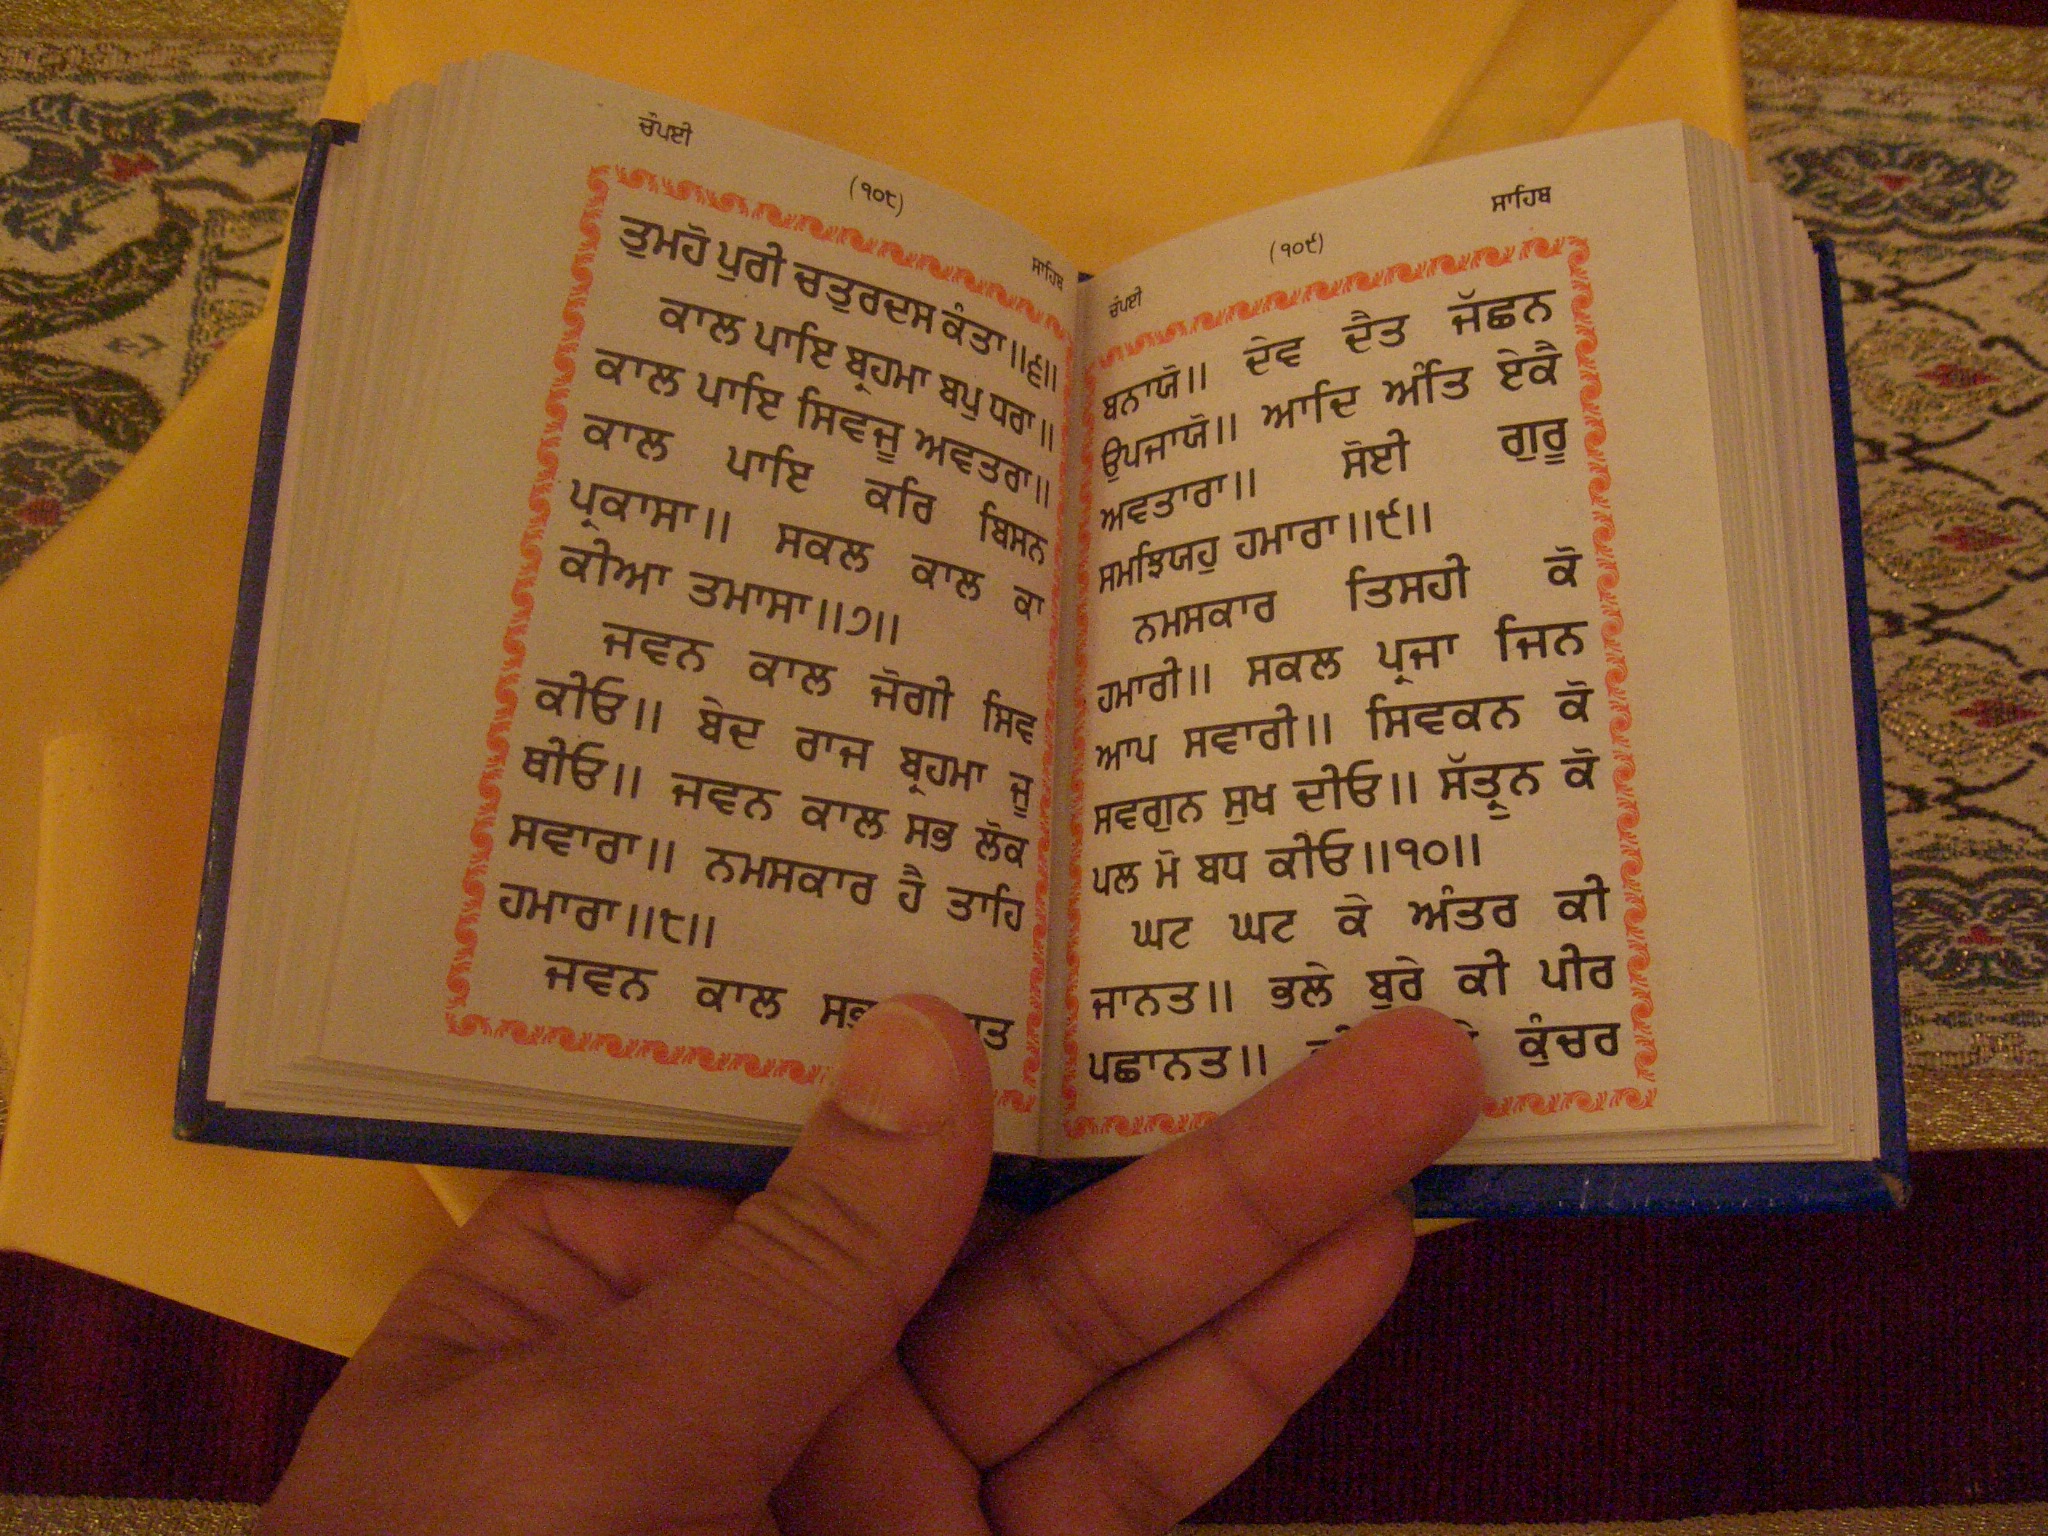 ਚੌਪਈ
(੧੦੮)
ਸਾਹਿਬ
ਤੁਮਹੋ ਪੁਰੀ ਚਤੁਰਦਸ ਕੰਤਾ॥੬॥
ਕਾਲ ਪਾਇ ਬ੍ਰਹਮਾ ਬਪੁ ਧਰਾ॥
ਕਾਲ ਪਾਇ ਸਿਵਜੂ ਅਵਤਰਾ॥
ਕਾਲ ਪਾਇ ਕਰਿ ਬਿਸਨ
ਪ੍ਰਕਾਸਾ॥ ਸਕਲ ਕਾਲ ਕਾ
ਕੀਆ ਤਮਾਸਾ॥੭॥
ਜਵਨ ਕਾਲ ਜੋਗੀ ਸਿਵ
ਕੀਓ॥ ਬੇਦ ਰਾਜ ਬ੍ਰਹਮਾ ਜੂ
ਥੀਓ॥ ਜਵਨ ਕਾਲ ਸਭ ਲੋਕ
ਸਵਾਰਾ॥ ਨਮਸਕਾਰ ਹੈ ਤਾਹਿ
ਹਮਾਰਾ॥੮॥
ਜਵਨ ਕਾਲ ਸਭ
ਚੌਪਈ
(੧੦੯)
ਸਾਹਿਬ
ਬਨਾਯੋ॥ ਦੇਵ ਦੈਤ ਜੱਛਨ
ਉਪਜਾਯੋ॥ ਆਦਿ ਅੰਤਿ ਏਕੈ
ਅਵਤਾਰਾ॥ ਸੋਈ ਗੁਰੂ
ਸਮਝਿਯਹੁ ਹਮਾਰਾ॥੯॥
ਨਮਸਕਾਰ ਤਿਸਹੀ ਕੋ
ਹਮਾਰੀ॥ ਸਕਲ ਪ੍ਰਜਾ ਜਿਨ
ਆਪ ਸਵਾਰੀ॥ ਸਿਵਕਨ ਕੋ
ਸਵਗੁਨ ਸੁਖ ਦੀਓ॥ ਸੱਤ੍ਰੁਨ ਕੋ
ਪਲ ਮੋ ਬਧ ਕੀਓ॥੧੦॥
ਘਟ ਘਟ ਕੇ ਅੰਤਰ ਕੀ
ਜਾਨਤ॥ ਭਲੇ ਬੁਰੇ ਕੀ ਪੀਰ
ਪਛਾਨਤ॥ ਕੁੰਚਰ